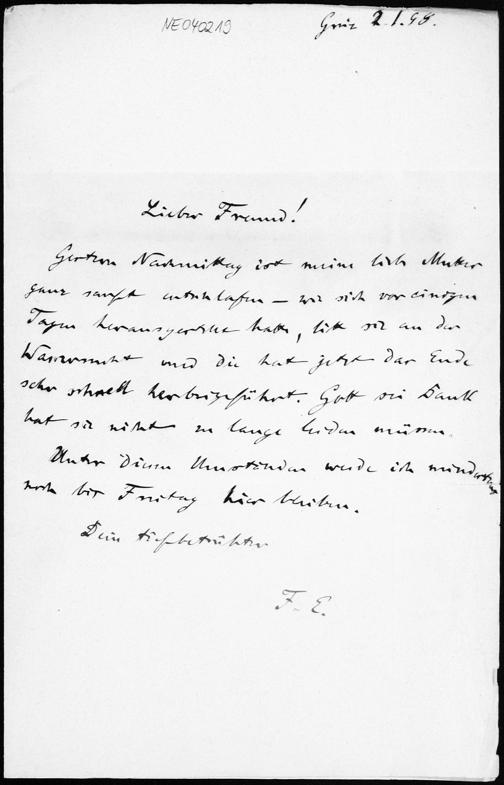 NE040219
Graz 2.1.98.
Lieber Freund!
Gestern Nachmittag ist meine liebe Mutter
ganz sanft entschlafen – wie sich vor einigen
Tagen herausgestellt hatte, litt sie an der
Wassersucht und die hat jetzt das Ende
sehr schnell herbeigeführt. Gott sei Dank
hat sie nicht zu lange leiden müssen.
Unter diesen Umständen werde ich mindestens
noch bis Freitag hier bleiben.
Dein tiefbetrübter
F. E.